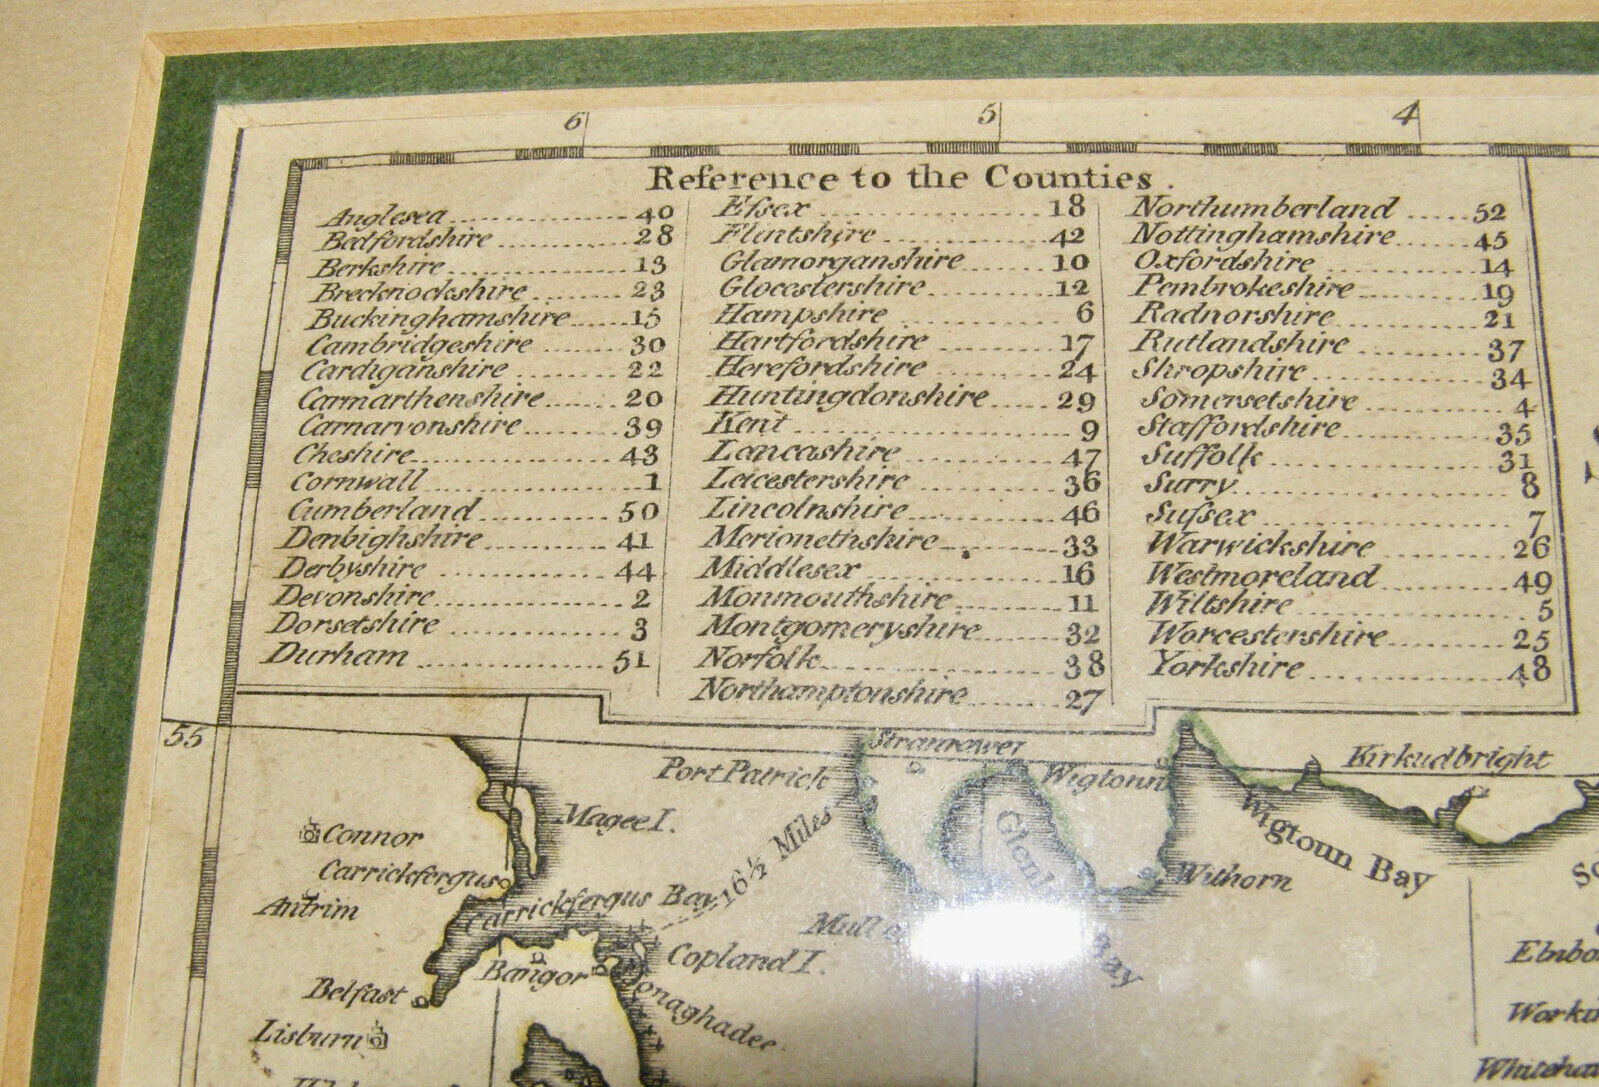 6 5 4
Reference to the Counties.
Anglesea 40
Bedfordshire 28
Berkshire 13
Brecknockshire 23
Buckinghamshire 15
Cambridgeshire 30
Cardiganshire 22
Carmarthenshire 20
Carnarvonshire 39
Cheshire 43
Cornwall 1
Cumberland 50
Denbighshire 41
Derbyshire 44
Devonshire 2
Dorsetshire 3
Durham 51
Eſsex 18
Flintshire 42
Glamorganshire 10
Glocestershire 12
Hampshire 6
Hartfordshire 17
Herefordshire 24
Huntingdonshire 29
Kent 9
Lancashire 47
Leicestershire 36
Lincolnshire 46
Merionethshire 33
Middlesex 16
Monmouthshire 11
Montgomeryshire 32
Norfolk 38
Northamptonshire 27
Northumberland 52
Nottinghamshire 45
Oxfordshire 14
Pembrokeshire 19
Radnorshire 21
Rutlandshire 37
Shropshire 34
Somersetshire 4
Staffordshire 35
Suffolk 31
Surry 8
Suſsex 7
Warwickshire 26
Westmoreland 49
Wiltshire 5
Worcestershire 25
Yorkshire 48
55
Stranrawer
Port Patrick
Wigtonn
Kirkudbright
Magee I.
16½ Miles
Wigtoun Bay
Connor
Carrickfergus
Withorn
Antrim
Carrickfergus Bay
Mull
Bay
Copland I.
Bangor
Belfast
Donaghadee
Lisburn